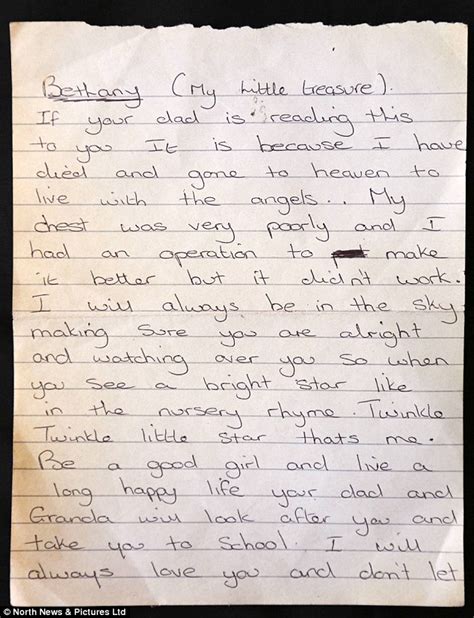 Bethany (My little treasure).
If your dad is reading this
to you It is because I have
died and gone to heaven to
live with the angels.. My
chest was very poorly and I
had an operation to make
it better but it didn't work.
I will always be in the sky
making sure you are alright
and watching over you so when
you see a bright star like
in the nursery rhyme. Twinkle
Twinkle little star thats me.
Be a good girl and live a
long happy life your dad and
Granda will look after you and
take you to school. I will
always love you and don't let
© North News & Pictures Ltd